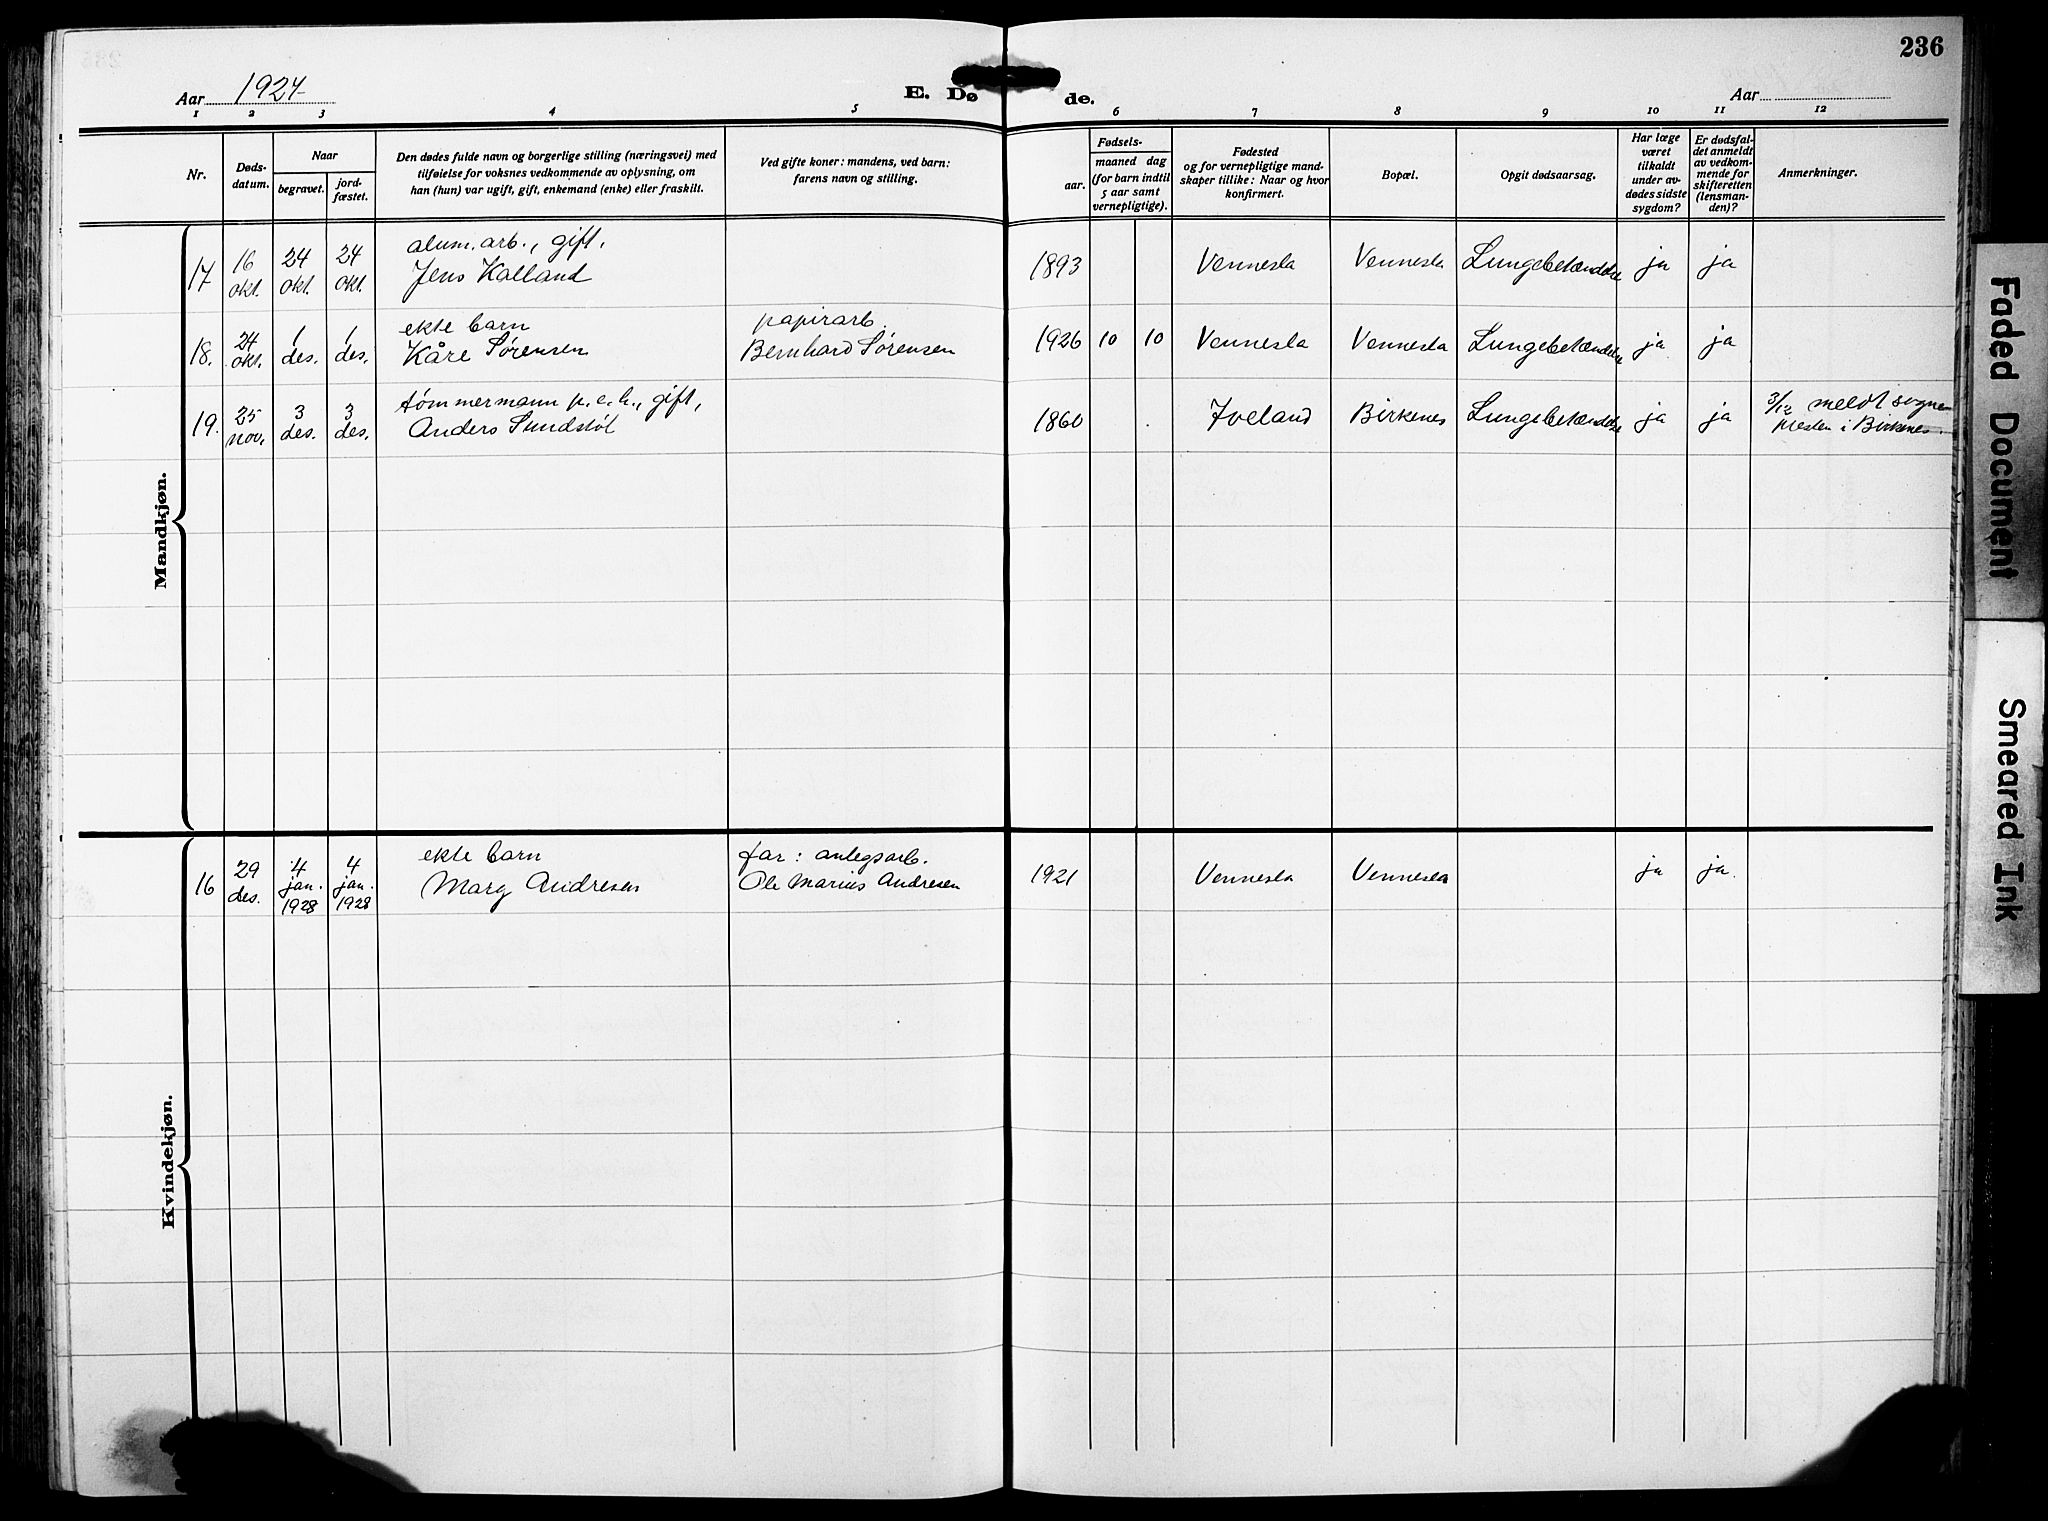 236
Aar 1927
E. Døde.
Aar
1 2 3 4 5 6 7 8 9 10 11 12
Nr.
Døds-
datum.
Naar
begravet.
jord-
fæstet.
Den dødes fulde navn og borgerlige stilling (næringsvei) med
tilføielse for voksnes vedkommende av oplysning, om
han (hun) var ugift, gift, enkemand (enke) eller fraskilt.
Ved gifte koner: mandens, ved barn:
farens navn og stilling.
Fødsels-
aar.
maaned dag
(for barn indtil
5 aar samt
vernepligtige).
Fødested
og for vernepligtige mand-
skaper tillike: Naar og hvor
konfirmert.
Bopæl.
Opgit dødsaarsag.
Har læge
været
tilkaldt
under av-
dødes sidste
sygdom?
Er dødsfal-
det anmeldt
av vedkom-
mende for
skifteretten
(lensman-
den)?
Anmerkninger.
Mandkjøn.
17 16 okt. 24 okt. 24 okt. alum. arb., gift,
Jens Kalland 1893 Vennesla Vennesla Lungebetændelse ja ja
18. 24 okt. 1 des. 1 des. ekte barn
Kåre Sørensen
papirarb.
Bernhard Sørensen 1926 10 10 Vennesla Vennesla Lungebetændelse ja ja
19. 25 nov. 3 des. 3 des. tømmermann p.e.h., gift,
Anders Sundstøl 1860 Iveland Birkenes Lungebetændelse ja ja
3/12 meldt sogne
presten i Birkenes.
Kvindekjøn.
16 29 des. 4 jan. 1928 4 jan. 1928 ekte barn
Mary Andresen
far: anlegsarb.
Ole Marius Andresen 1921 Vennesla Vennesla ja ja.
Faded Document
Smeared Ink